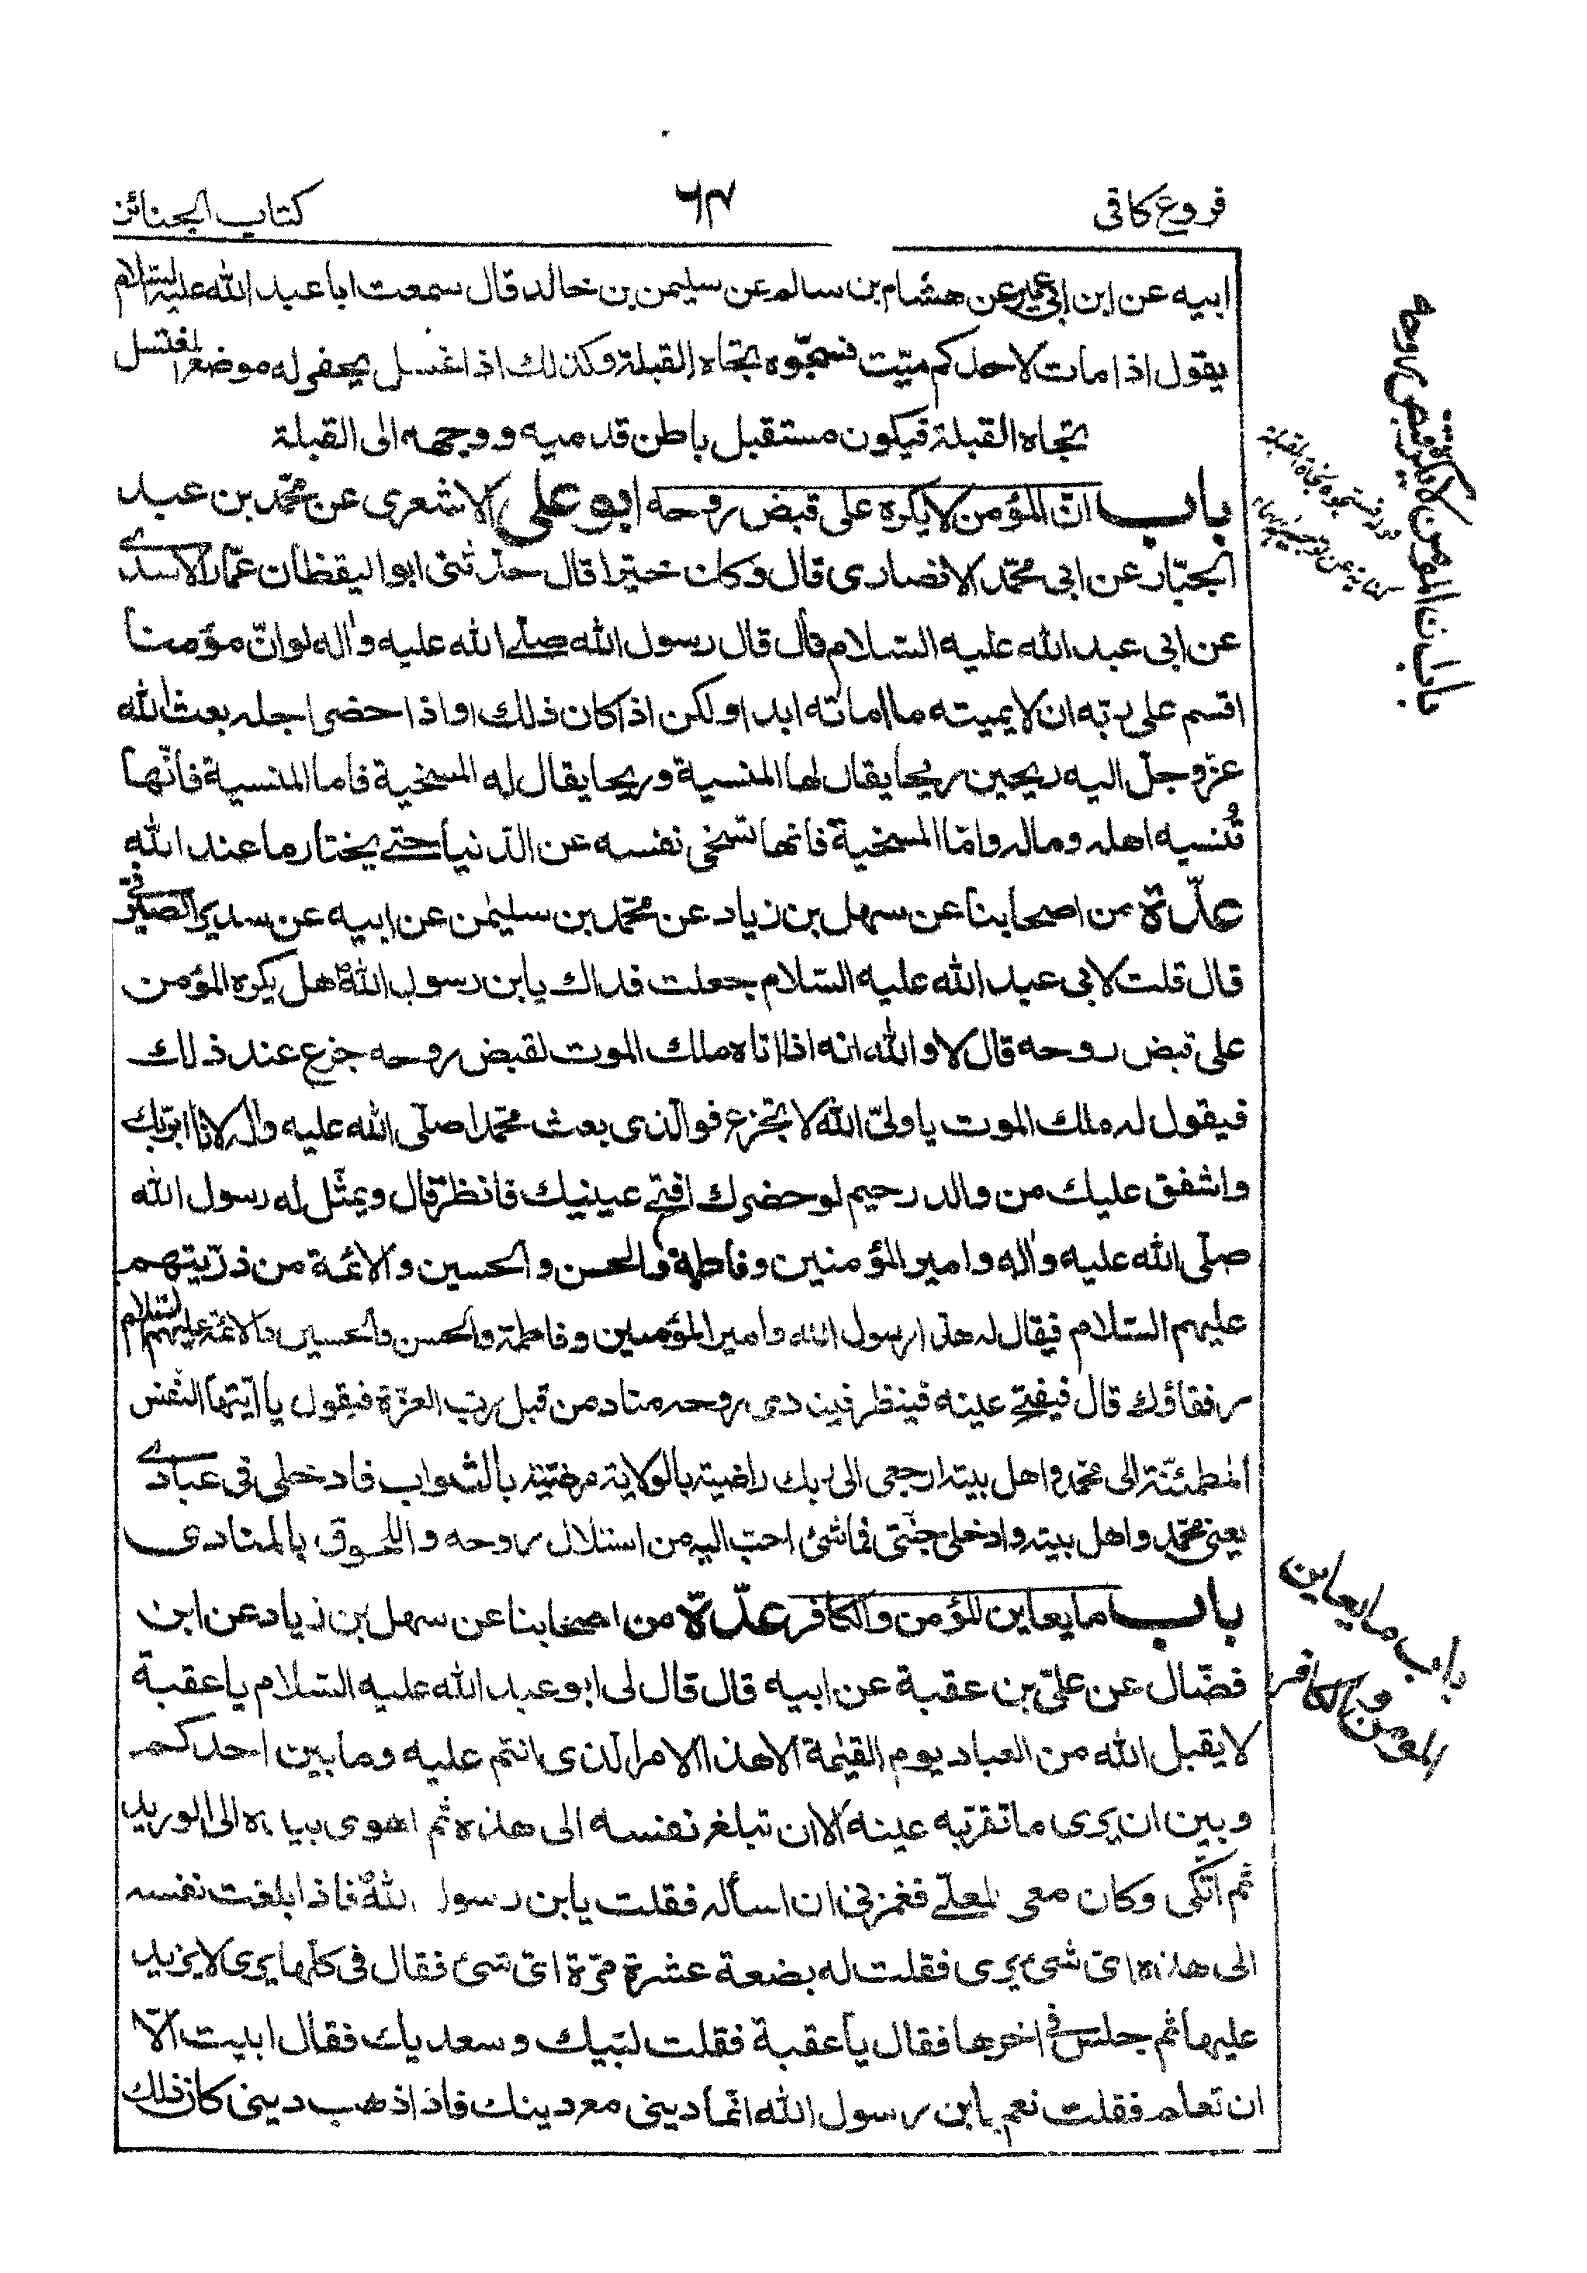 فروع كافى
٦٣
كتاب الجنائز
ابيه عن ابن ابى عمير عن هشام بن سالم عن سليمن بن خالد قال سمعت ابا عبد الله عليه السلام
يقول اذا مات لاحدكم ميّت فسجّوه تجاه القبلة وكذلك اذا غسل يحفر له موضع المغتسل
تجاه القبلة فيكون مستقبل باطن قدميه ووجهه الى القبلة
باب انّ المؤمن لا يكره على قبض روحه ابو على الاشعرى عن محمّد بن عبد
الجبّار عن ابى محمّد الانصارى قال وكان خيّرا قال حدّثنى ابو اليقظان عمّار الاسدى
عن ابى عبد الله عليه السّلام قال قال رسول الله صلى الله عليه واله لو انّ مؤمنا
اقسم على ربّه ان لا يميته ما اماته ابدا ولكن اذا كان ذلك او اذا حضر اجله بعث الله
عزّ وجلّ اليه ريحين ريحا يقال لها المنسية وريحا يقال له المسخية فاما المنسية فانّها
تُنسيه اهله وماله وامّا المسخية فانها تسخى نفسه عن الدّنيا حتى يختار ما عند الله
عدّة من اصحابنا عن سهل بن زياد عن محمّد بن سليمن عن ابيه عن سدير الصيرفى
قال قلت لابى عبد الله عليه السّلام جعلت فداك يابن رسول الله هل يكره المؤمن
على قبض روحه قال لا والله انه اذا اتاه ملك الموت لقبض روحه جزع عند ذلك
فيقول له ملك الموت يا ولىّ الله لا تجزع فو الّذى بعث محمّدا صلّى الله عليه واله لانا ابرّ بك
واشفق عليك من والد رحيم لو حضرك افتح عينيك فانظر قال ويمثّل له رسول الله
صلّى الله عليه واله وامير المؤمنين وفاطمة والحسن والحسين والائمة من ذرّيتهم
عليهم السّلام فيقال له هذا رسول الله وامير المؤمنين وفاطمة والحسن والحسين والائمة عليهم السلام
رفقاؤك قال فيفتح عينه فينظر فينادى روحه مناد من قبل ربّ العزّة فيقول يا ايّتها النّفس
المطمئنّة الى محمّد واهل بيته ارجعى الى ربك راضية بالولاية مرضيّة بالثّواب فادخلى فى عبادى
يعنى محمّد واهل بيته وادخلى جنّتى فما شئ احبّ اليه من استلال روحه واللحوق بالمنادى
باب ما يعاين المؤمن والكافر عدّة من اصحابنا عن سهل بن زياد عن ابن
فضّال عن علىّ بن عقبة عن ابيه قال قال لى ابو عبد الله عليه السّلام يا عقبة
لا يقبل الله من العباد يوم القيٰمة الا هذا الامر الذى انتم عليه وما بين احدكم
وبين ان يرى ما تقرّ به عينه الا ان تبلغ نفسه الى هذه ثم اهوى بيده الى الوريد
ثم اتّكى وكان معى المعلّى فغمزنى ان اسأله فقلت يابن رسول الله فاذا بلغت نفسه
الى هذه اىّ شئ يرى فقلت له بضعة عشرة مرّة اىّ شئ فقال فى كلّها يرى لا يزيد
عليها ثم جلس فى اخرها فقال يا عقبة فقلت لبّيك وسعديك فقال ابيت الّا
ان تعلم فقلت نعم يابن رسول الله انّما دينى مع دينك فاذا ذهب دينى كان ذلك
باب ان المؤمن لا يكره على قبض روحه
باب ما يعاين
المؤمن والكافر